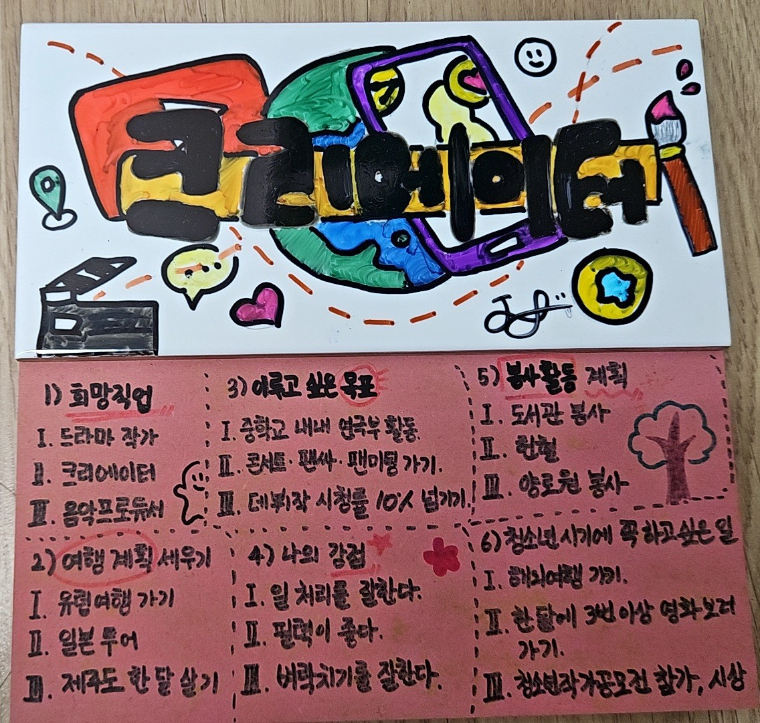 크리에이터
1) 희망직업
I. 드라마 작가
II. 크리에이터
III. 음악프로듀서
2) 여행 계획 세우기
I. 유럽여행 가기
II. 일본 투어
III. 제주도 한 달 살기
3) 이루고 싶은 목표
I. 중학교 내내 연극부 활동.
II. 콘서트·팬싸·팬미팅 가기.
III. 데뷔작 시청률 10% 넘기기
4) 나의 강점
I. 일 처리를 잘한다.
II. 필력이 좋다.
III. 벼락치기를 잘한다.
5) 봉사활동 계획
I. 도서관 봉사
II. 헌혈
III. 양로원 봉사
6) 청소년 시기에 꼭 하고싶은 일
I. 해외여행 가기.
II. 한 달에 3번 이상 영화 보러
가기.
III. 청소년작가공모전 참가, 시상